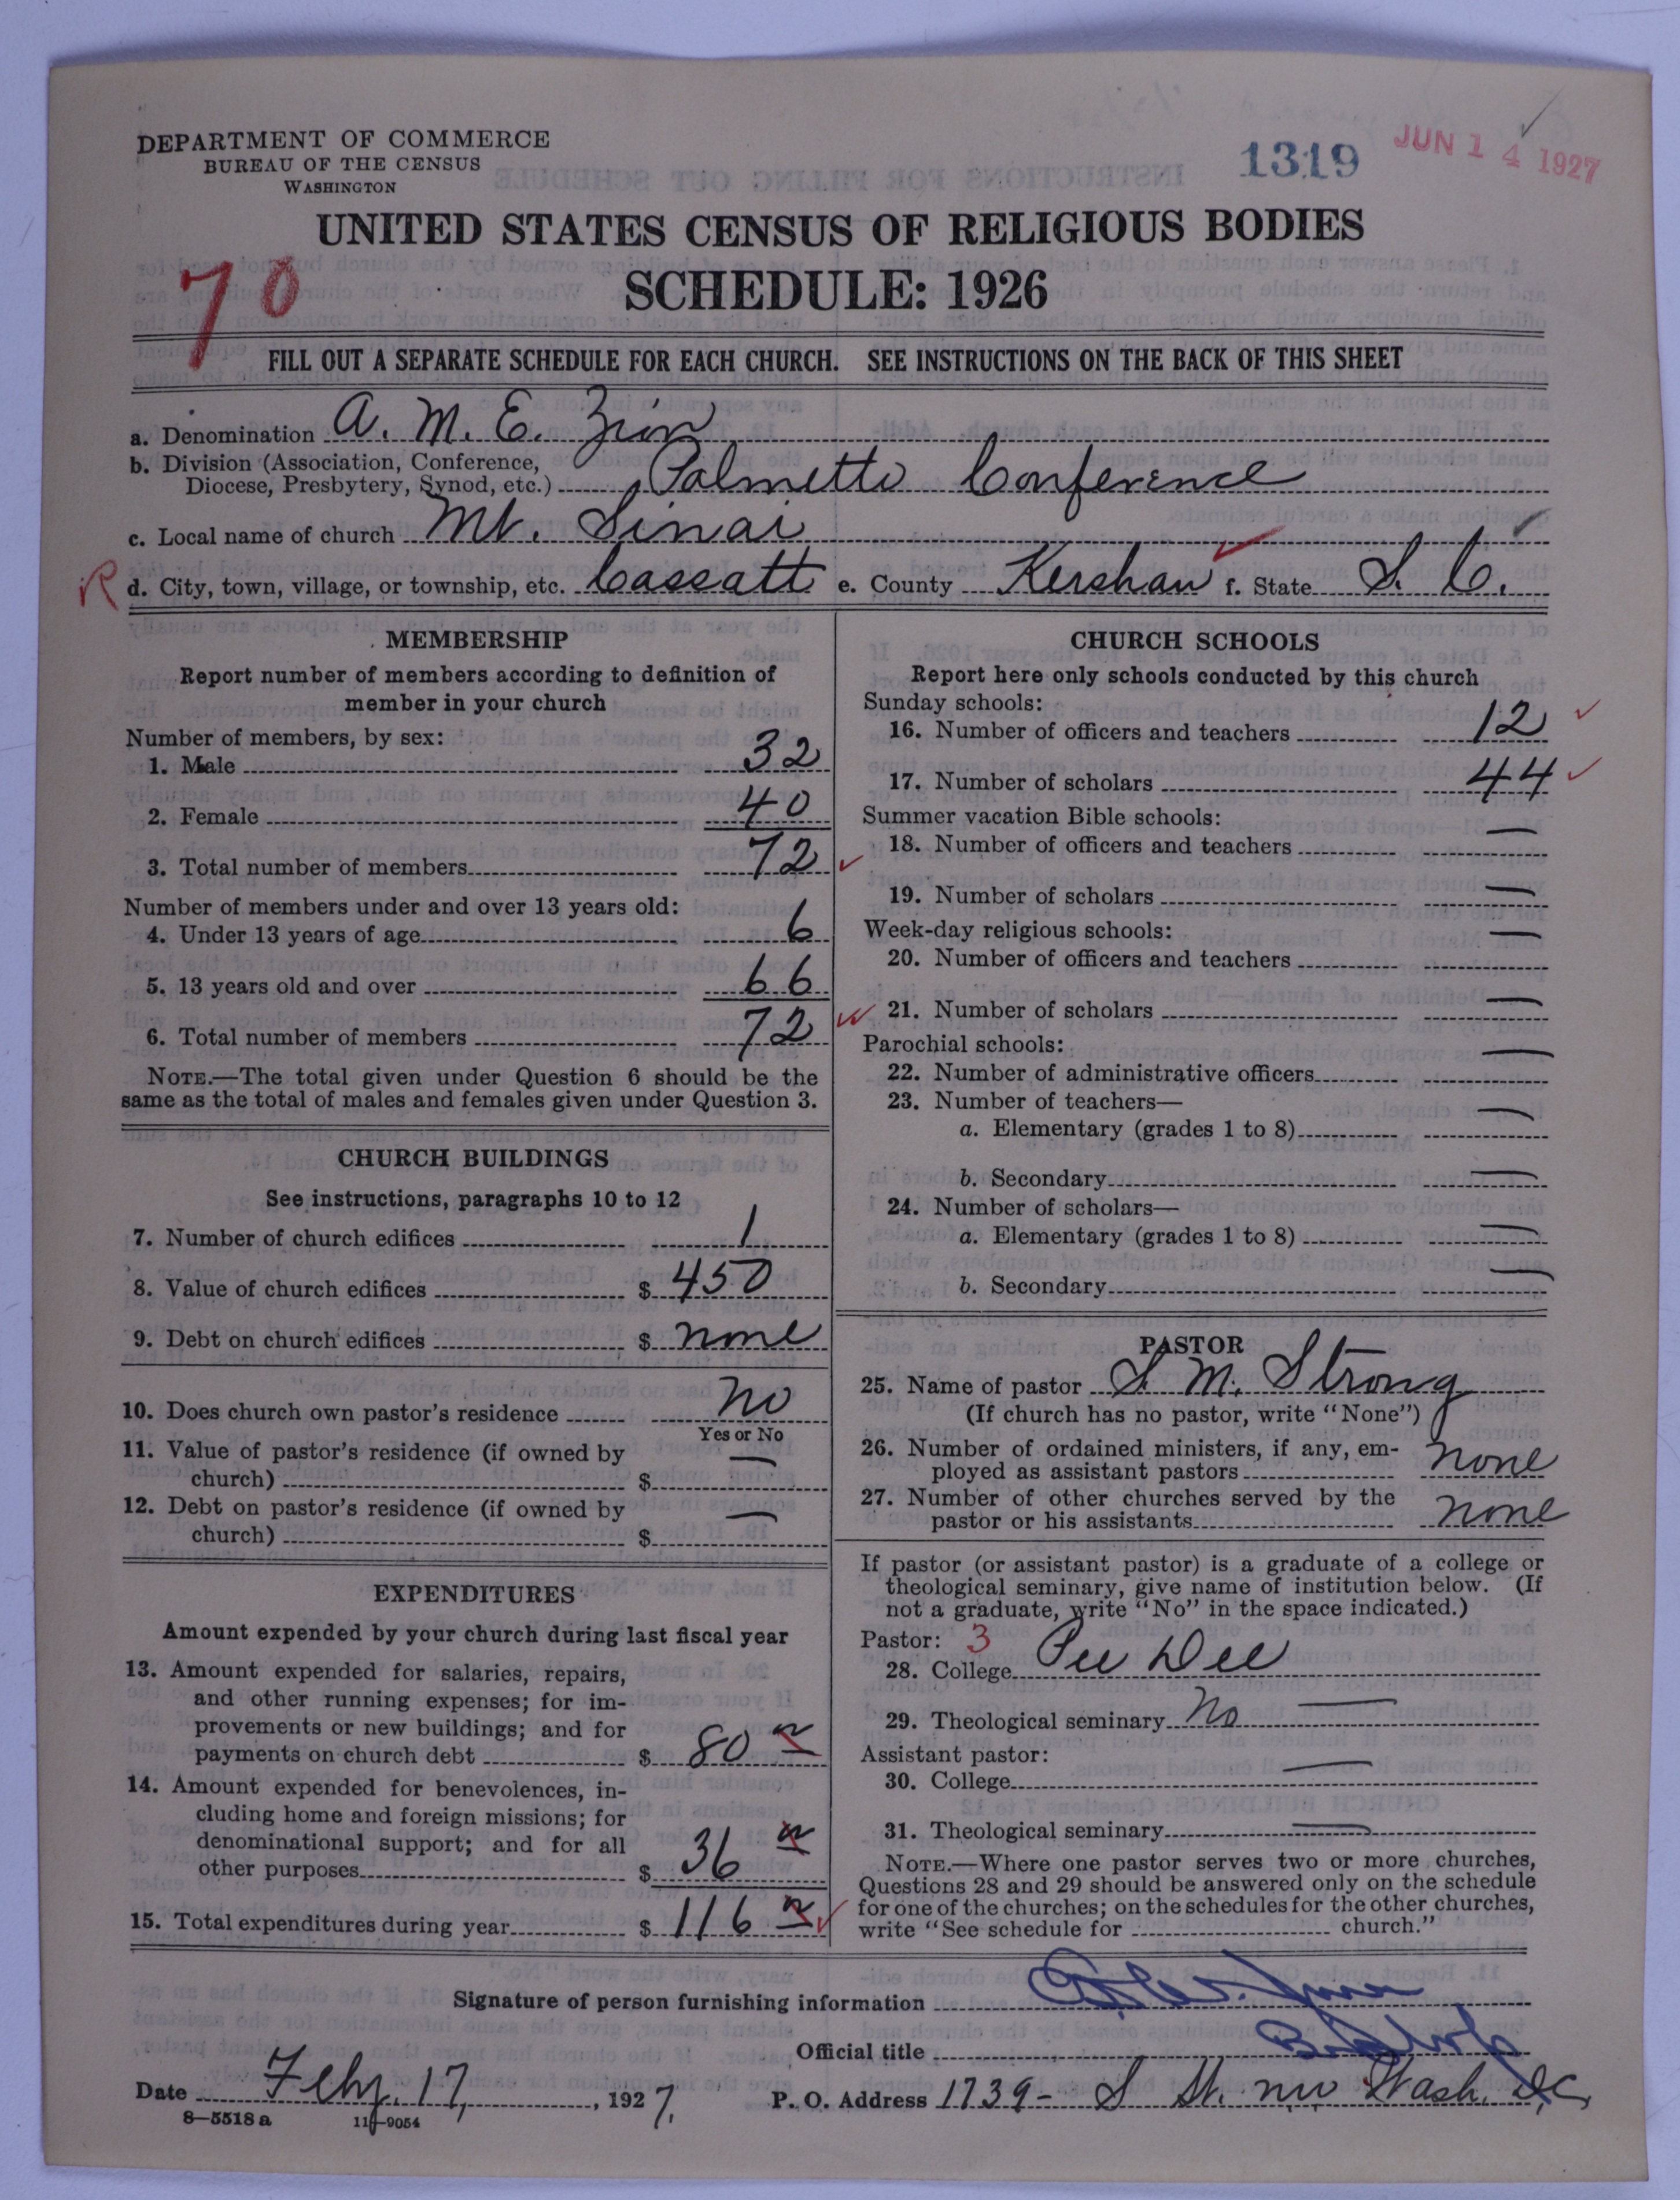 DEPARTMENT OF COMMERCE
BUREAU OF THE CENSUS
WASHINGTON
1319
JUN 14 1927
UNITED STATES CENSUS OF RELIGIOUS BODIES
SCHEDULE: 1926
70
FILL OUT A SEPARATE SCHEDULE FOR EACH CHURCH. SEE INSTRUCTIONS ON THE BACK OF THIS SHEET
a. Denomination A. M. E. Zion
b. Division (Association, Conference,
Diocese, Presbytery, Synod, etc.) Palmetto Conference
c. Local name of church Mt. Sinai
R d. City, town, village, or township, etc. Cassatt e. County Kershaw f. State S. C.
MEMBERSHIP
Report number of members according to definition of
member in your church
Number of members, by sex:
1. Male 32
2. Female 40
3. Total number of members 72
Number of members under and over 13 years old:
4. Under 13 years of age 6
5. 13 years old and over 66
6. Total number of members 72
NOTE.—The total given under Question 6 should be the
same as the total of males and females given under Question 3.
CHURCH BUILDINGS
See instructions, paragraphs 10 to 12
7. Number of church edifices 1
8. Value of church edifices $ 450
9. Debt on church edifices $ none
10. Does church own pastor's residence No
Yes or No
11. Value of pastor's residence (if owned by
church) $ —
12. Debt on pastor's residence (if owned by
church) $ —
EXPENDITURES
Amount expended by your church during last fiscal year
13. Amount expended for salaries, repairs,
and other running expenses; for im-
provements or new buildings; and for
payments on church debt $ 80
14. Amount expended for benevolences, in-
cluding home and foreign missions; for
denominational support; and for all
other purposes $ 36
15. Total expenditures during year $ 116
CHURCH SCHOOLS
Report here only schools conducted by this church
Sunday schools:
16. Number of officers and teachers 12
17. Number of scholars 44
Summer vacation Bible schools:
18. Number of officers and teachers —
19. Number of scholars —
Week-day religious schools:
20. Number of officers and teachers —
21. Number of scholars —
Parochial schools:
22. Number of administrative officers —
23. Number of teachers—
a. Elementary (grades 1 to 8) —
b. Secondary —
24. Number of scholars—
a. Elementary (grades 1 to 8) —
b. Secondary —
PASTOR
25. Name of pastor S. M. Strong
(If church has no pastor, write "None")
26. Number of ordained ministers, if any, em-
ployed as assistant pastors none
27. Number of other churches served by the
pastor or his assistants none
If pastor (or assistant pastor) is a graduate of a college or
theological seminary, give name of institution below. (If
not a graduate, write "No" in the space indicated.)
Pastor: 3
28. College Pee Dee
29. Theological seminary No —
Assistant pastor:
30. College —
31. Theological seminary —
NOTE.—Where one pastor serves two or more churches,
Questions 28 and 29 should be answered only on the schedule
for one of the churches; on the schedules for the other churches,
write "See schedule for church."
Signature of person furnishing information
Official title Bishop
Date Feby. 17, 1927. P. O. Address 1739- S St. nw Wash. D.C.
8—5518 a 11—9054